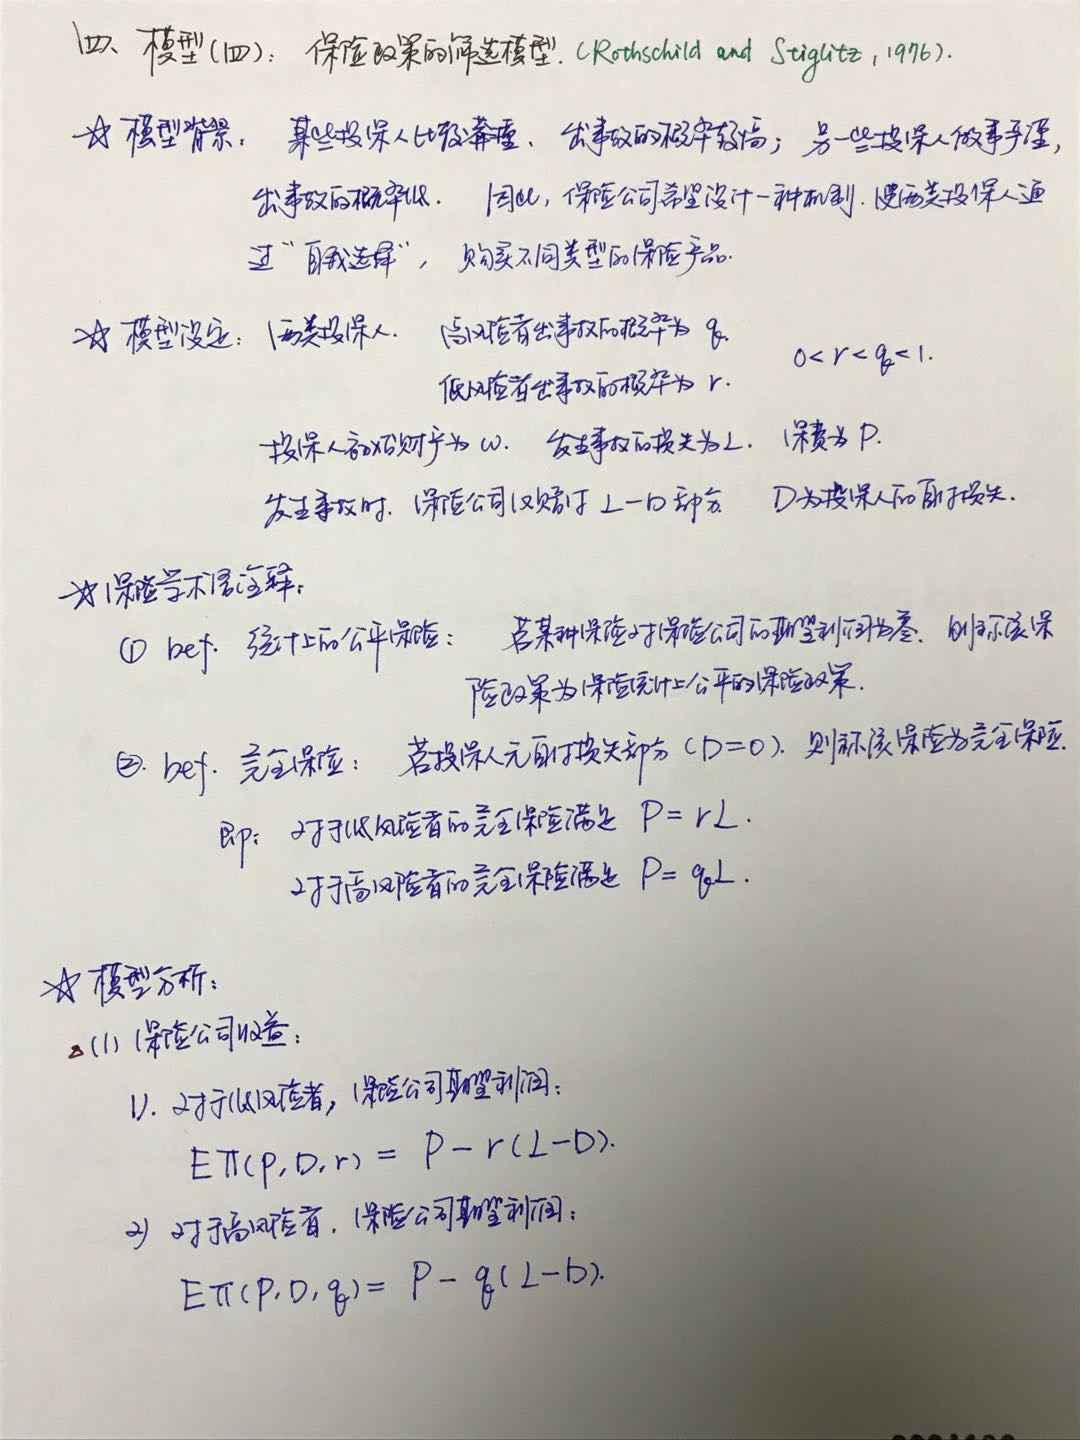 四、模型(四): 保险政策的筛选模型. (Rothschild and Stiglitz, 1976).
☆ 模型背景: 某些投保人比较莽撞、出事故的概率较高; 另一些投保人做事手谨,
出事故的概率低. 因此, 保险公司希望设计一种机制. 使两类投保人通
过"自我选择", 购买不同类型的保险产品.
☆ 模型设定: 两类投保人. 高风险者出事故的概率为 q.
0<r<q<1.
低风险者出事故的概率为 r.
投保人初始财产为 w. 发生事故的损失为L. 保费为 P.
发生事故时. 保险公司仅赔付 L-D 部分 D为投保人的自付损失.
☆ 保险学术语注释:
① bef. 统计上的公平保险: 若某种保险对保险公司的期望利润为零. 则称该保
险政策为保险统计上公平的保险政策.
②. bef. 完全保险: 若投保人无自付损失部分 (D=0). 则称该保险为完全保险.
即: 对于低风险者的完全保险满足 P=rL.
对于高风险者的完全保险满足 P=qL.
☆ 模型分析:
△(1) 保险公司收益:
1). 对于低风险者, 保险公司期望利润:
Eπ(P,D,r) = P-r(L-D).
2) 对于高风险者. 保险公司期望利润:
Eπ(P,D,q) = P-q(L-D).